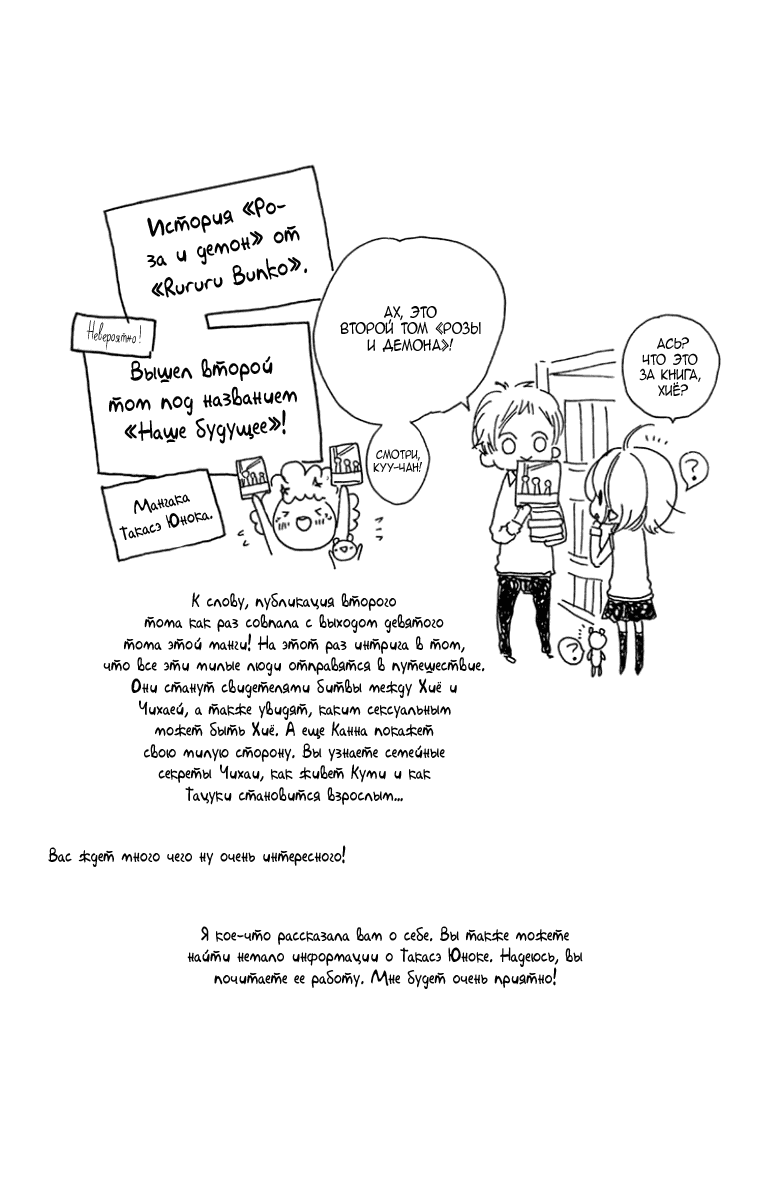 История «Ро-
за и демон» от
«Rururu Bunko».
Невероятно!
Вышел второй
том под названием
«Наше будущее»!
Мангака
Такасэ Юнока.
Ах, это
второй том «Розы
и демона»!
Смотри,
Куу-чан!
Ась?
Что это
за книга,
Хиё?
?
?
К слову, публикация второго
тома как раз совпала с выходом девятого
тома этой манги! На этот раз интрига в том,
что все эти милые люди отправятся в путешествие.
Они станут свидетелями битвы между Хиё и
Чихаей, а также увидят, каким сексуальным
может быть Хиё. А еще Канна покажет
свою милую сторону. Вы узнаете семейные
секреты Чихаи, как живет Куми и как
Тацуки становится взрослым...
Вас ждет много чего ну очень интересного!
Я кое-что рассказала вам о себе. Вы также можете
найти немало информации о Такасэ Юноке. Надеюсь, вы
почитаете ее работу. Мне будет очень приятно!